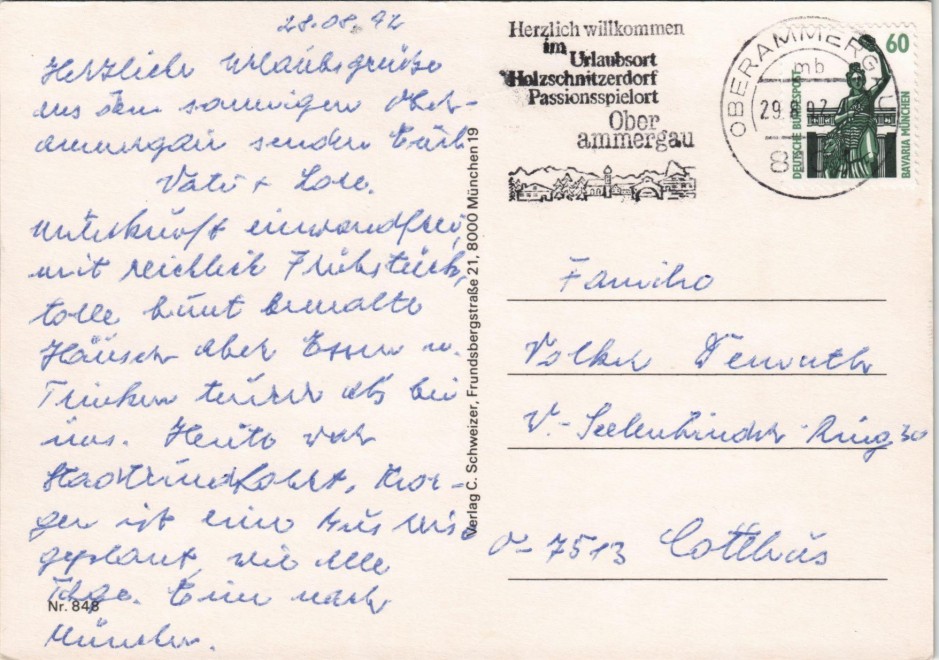 28.08.92
Herzliche Urlaubsgrüße
aus dem sonnigen Ober-
ammergau senden Euch
Vati + Lore.
Unterkunft einwandfrei,
mit reichlich Frühstück,
tolle bunt bemalte
Häuser aber Essen u.
Trinken teurer als bei
uns. Heute war
Stadtrundfahrt, Mor-
gen ist eine Aus
geplant, wie alle
Tage. Eine nach
München.
Nr. 848
Verlag C. Schweizer, Frundsbergstraße 21, 8000 München 19
Herzlich willkommen
im
Urlaubsort
Holzschnitzerdorf
Passionsspielort
Ober
ammergau
OBERAMMERG
mb
29.8.92
8
60
DEUTSCHE BUNDESPOST
BAVARIA MÜNCHEN
Familie
Volker Demuth
W.-Seelenbinder-Ring 30
O-7513 Cottbus